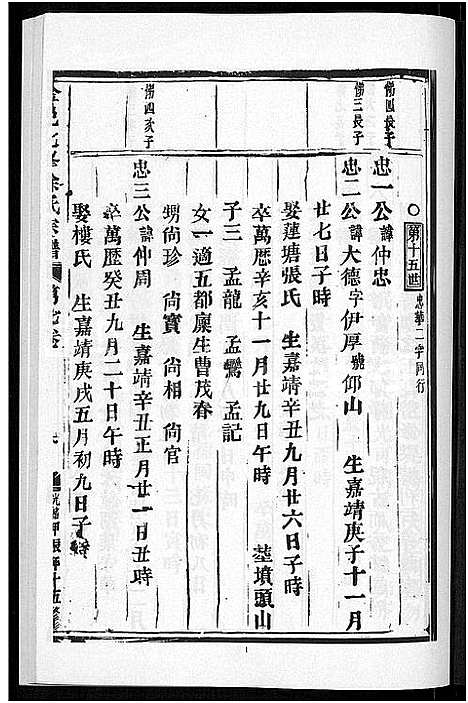 ○第十五世 忠華二字同行
備四長子
忠一公諱仲忠
備三長子
忠二公諱大德字伊厚號仰山 生嘉靖庚子十一月
廿七日子時
娶蓮塘張氏 生嘉靖辛丑九月廿六日子時
卒萬歷辛亥十一月廿九日午時 塟墳頭山
子三 孟龍 孟鸞 孟記
女一適五都廩生曹茂春
甥尚珍 尚寳 尚相 尚官
備四次子
忠三公諱仲周 生嘉靖辛丑正月廿一日丑時
卒萬歷癸丑九月二十日午時
娶樓氏 生嘉靖庚戌五月初九日子時
氏宗譜 第七卷 光緒甲辰